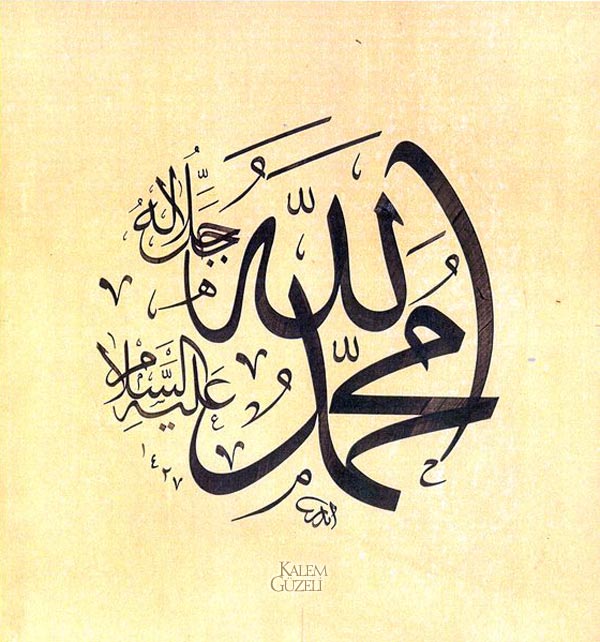 الله
جَلَّ جَلَالُهُ
مُحَمَّد
عَلَيْهِ السَّلَام
١٤٢٧
KALEM
GÜZELİ